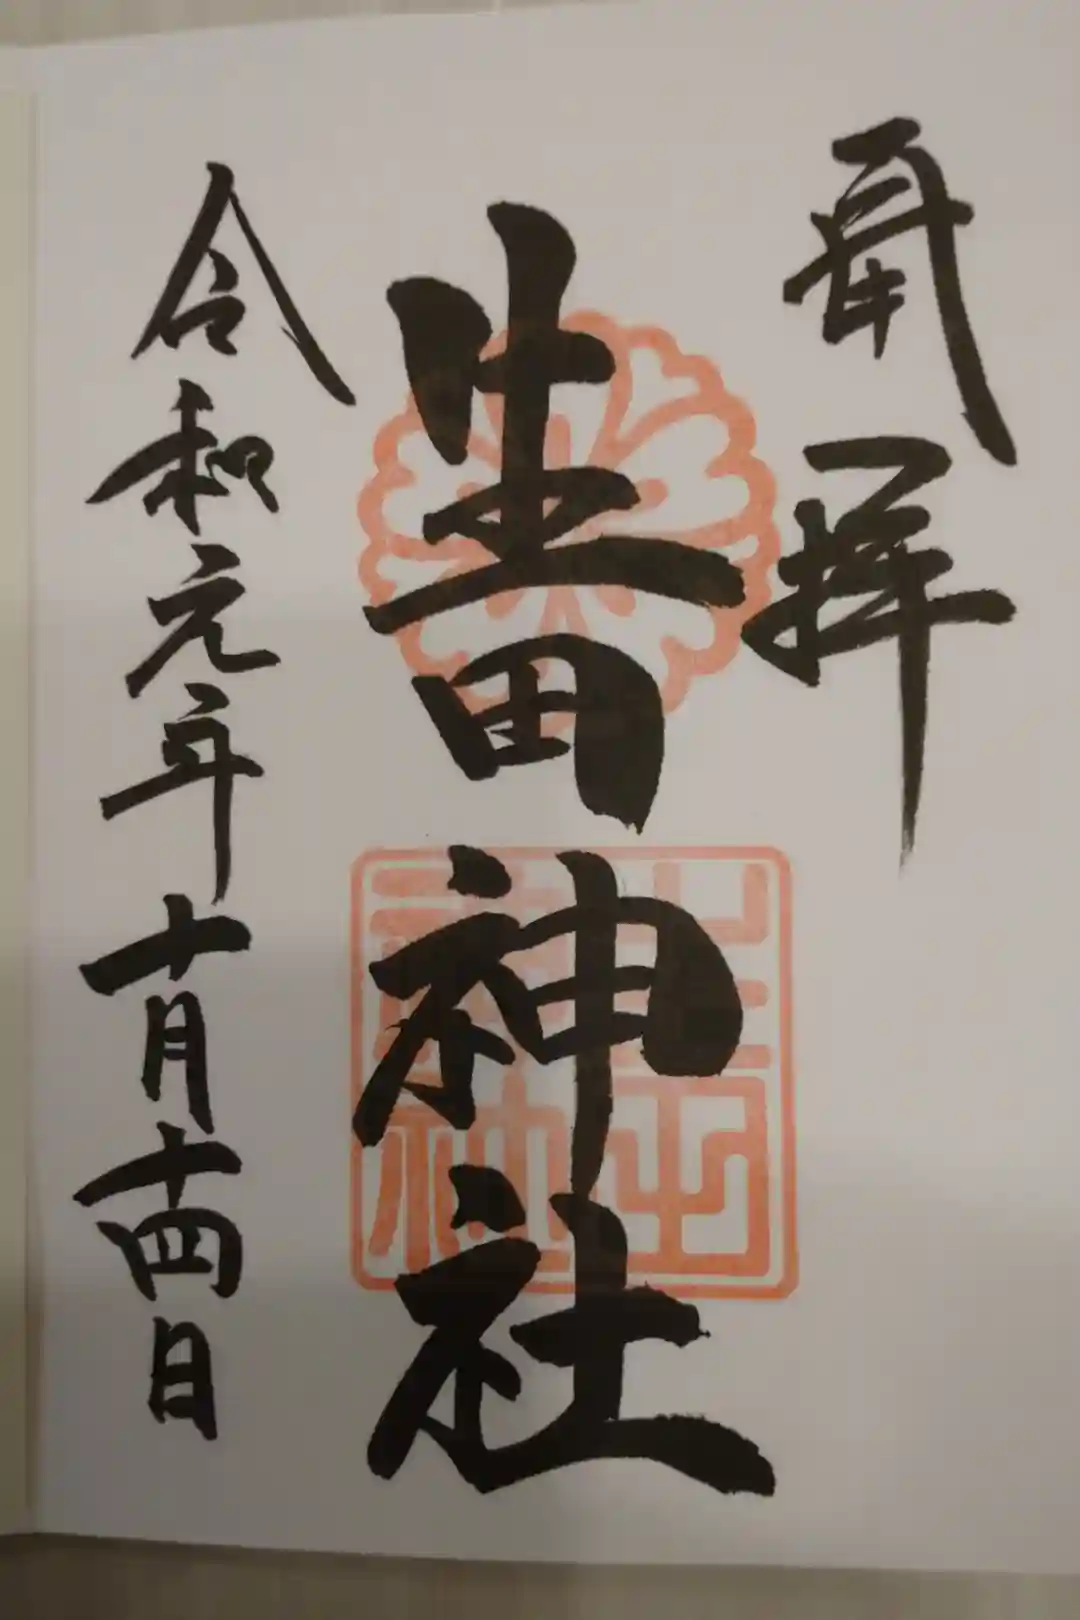 奉拝
生田神社
令和元年十月十四日
生田神社